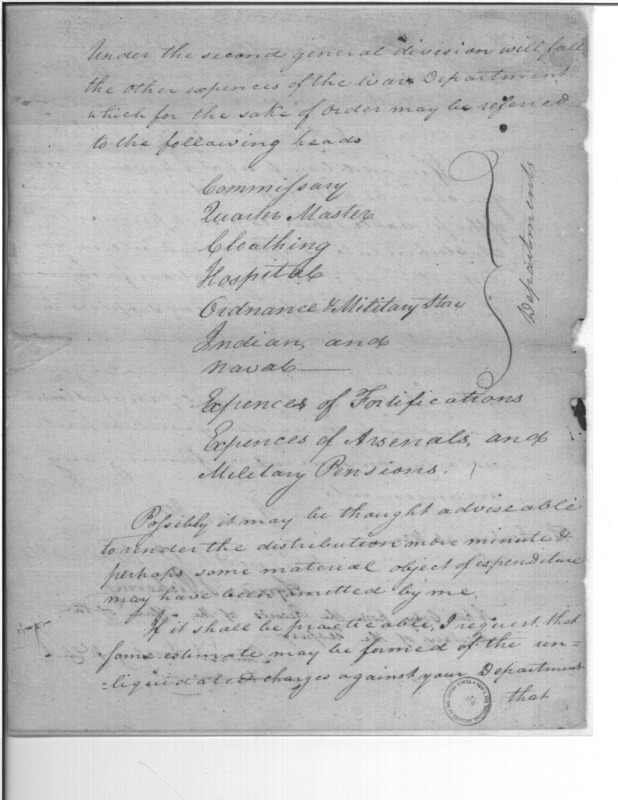 Under the second general division will fall
the other expences of the War Department
which for the sake of order may be referred
to the following heads
Commissary
Quarter Master
Cloathing
Hospital
Ordnance & Military Store
Indian, and
Naval
Departments
Expences of Fortifications
Expences of Arsenals, and
Military Pensions.
Possibly it may be thought adviseable
to render the distribution more minute &
perhaps some material object of expenditure
may have been omitted by me.
If it shall be practicable, I request that
some estimate may be formed of the un=
=liquidated charges against your Department
that